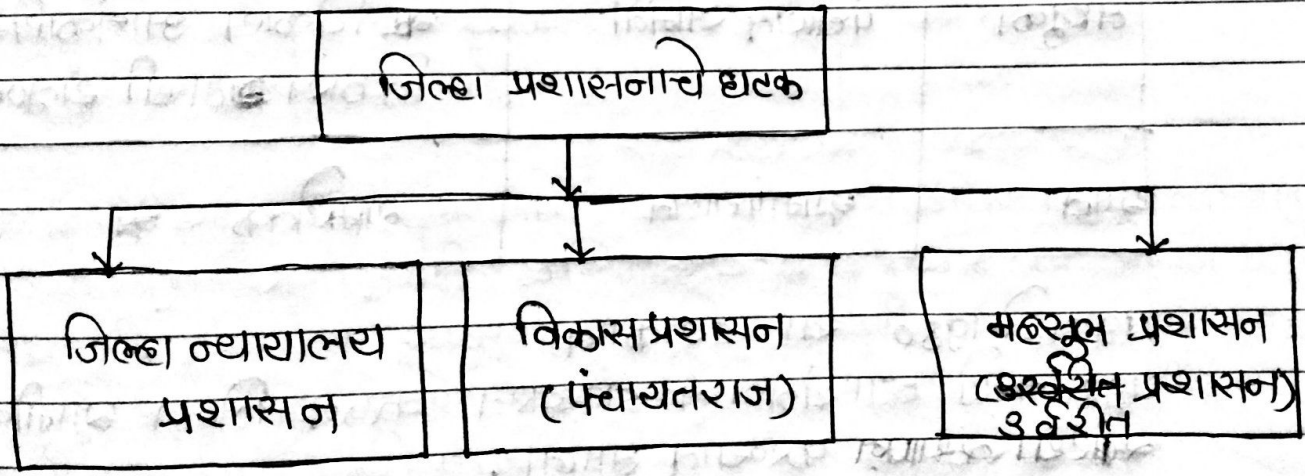 जिल्हा प्रशासनाचे घटक
जिल्हा न्यायालय
प्रशासन
विकास प्रशासन
(पंचायतराज)
महसूल प्रशासन
( प्रशासन)
उर्वरीत